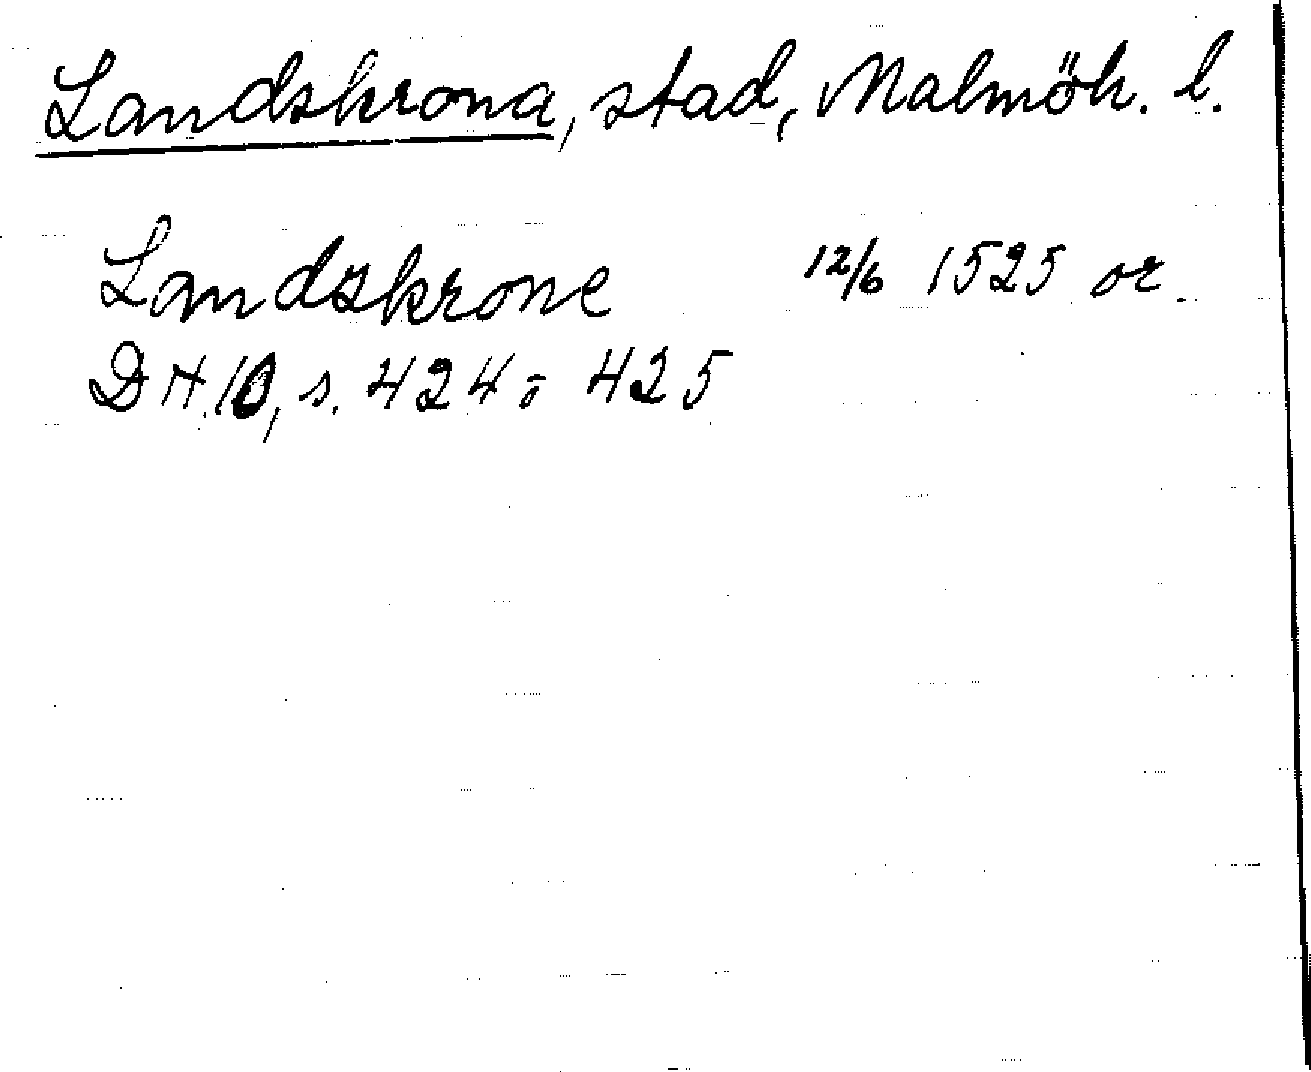 Landskrona, stad, Malmöh. l.
Landzkrone 12/6 1525 or.
DN.10, s. 424-425